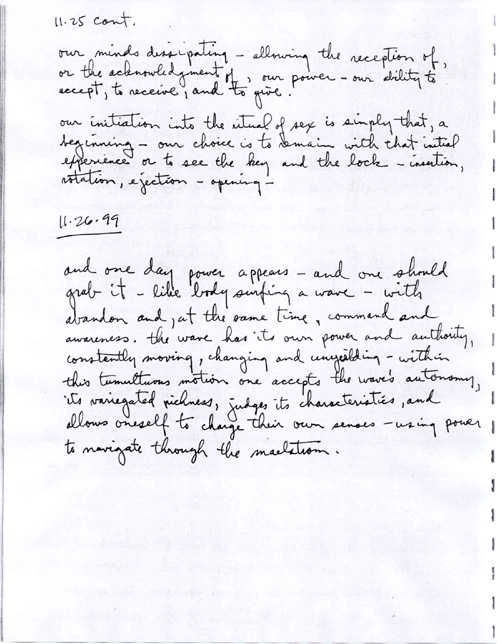 11.25 cont.
our minds dissipating – allowing the reception of,
or the acknowledgment of, our power – our ability to
accept, to receive, and to give.
our initiation into the ritual of sex is simply that, a
beginning – our choice is to remain with that initial
experience or to see the key and the lock – insertion,
rotation, ejection – opening –
11.26.99
and one day power appears – and one should
grab it – like body surfing a wave – with
abandon and, at the same time, command and
awareness. the wave has its own power and authority,
constantly moving, changing and unyielding – within
this tumultuous motion one accepts the wave's autonomy,
its variegated richness, judges its characteristics, and
allows oneself to charge their own senses – using power
to navigate through the maelstrom.